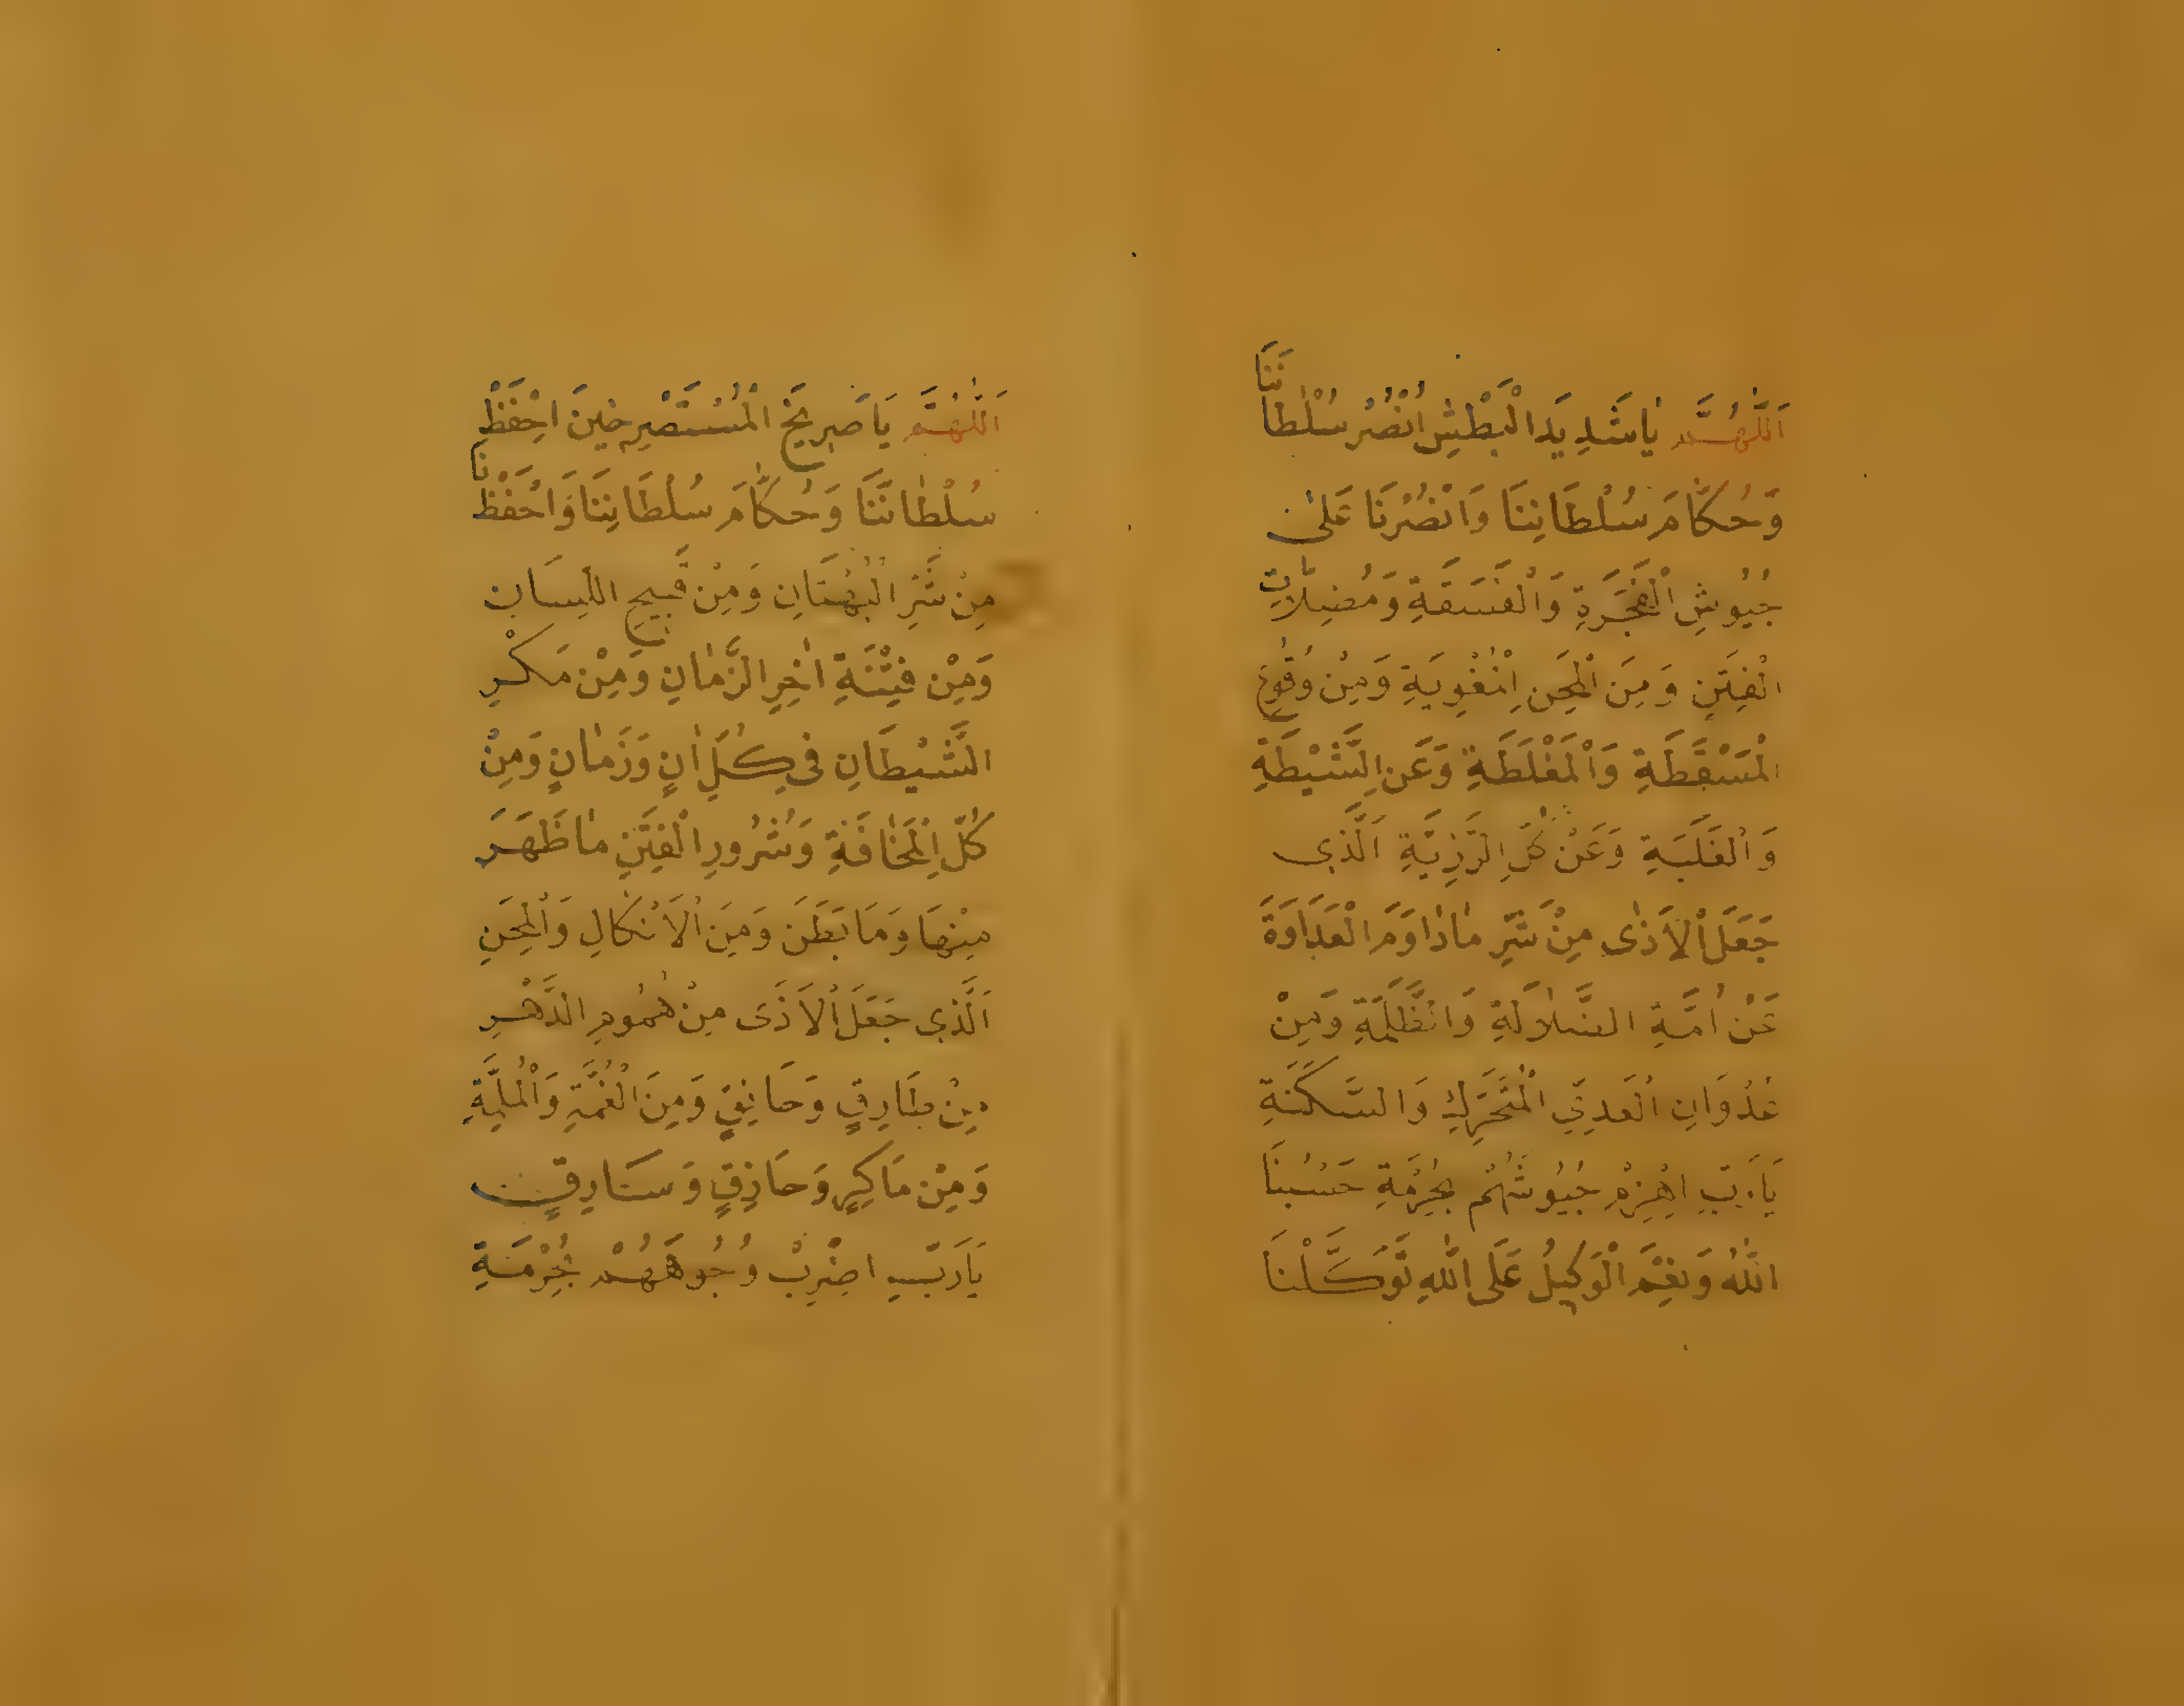 اَللّٰهُمَّ يَا شَدِيدَ الْبَطْشِ اُنْصُرْ سُلْطَانَنَا
وَحُكَّامَ سُلْطَانِنَا وَانْصُرْنَا عَلٰى
جُيُوشِ الْفَجَرَةِ وَالْفَسَقَةِ وَمُضِلَّاتِ
الْفِتَنِ وَمِنَ الْمِحَنِ الْمُغْوِيَةِ وَمِنْ وُقُوعِ
الْمَسْقَطَةِ وَالْمَغْلَطَةِ وَعَنِ الشَّيْطَةِ
وَالْغَلَبَةِ وَعَنْ كُلِّ الرَّزِيَّةِ اَلَّذِى
جَعَلَ الْاَذٰى مِنْ شَرِّ مَادَاوَمَ الْعَدَاوَةَ
عَنْ اُمَّةِ الضَّلَالَةِ وَالظَّلَمَةِ وَمِنْ
عُدْوَانِ الْعَدُوِّ الْمُتَحَرِّكِ وَالسَّكَنَةِ
يَارَبِّ اهْزِمْ جُيُوشَهُمْ بِحُرْمَةِ حَسْبُنَا
اللّٰهُ وَنِعْمَ الْوَكِيلُ عَلَى اللّٰهِ تَوَكَّلْنَا
اَللّٰهُمَّ يَا صَرِيخَ الْمُسْتَصْرِخِينَ احْفَظْ
سُلْطَانَنَا وَحُكَّامَ سُلْطَانِنَا وَاحْفَظْنَا
مِنْ شَرِّ الْبُهْتَانِ وَمِنْ قَبِيحِ اللِّسَانِ
وَمِنْ فِتْنَةِ اٰخِرِ الزَّمَانِ وَمِنْ مَكْرِ
الشَّيْطَانِ فِى كُلِّ اٰنٍ وَزَمَانٍ وَمِنْ
كُلِّ الْمَخَافَةِ وَشُرُورِ الْفِتَنِ مَا ظَهَرَ
مِنْهَا وَمَا بَطَنَ وَمِنَ الْاَنْكَالِ وَالْمِحَنِ
اَلَّذِى جَعَلَ الْاَذَى مِنْ هُمُومِ الدَّهْرِ
مِنْ طَارِقٍ وَحَانِقٍ وَمِنَ الْغُمَّةِ وَالْمُلِمَّةِ
وَمِنْ مَاكِرٍ وَحَاذِقٍ وَسَارِقٍ
يَارَبِّ اضْرِبْ وُجُوهَهُمْ بِحُرْمَةِ